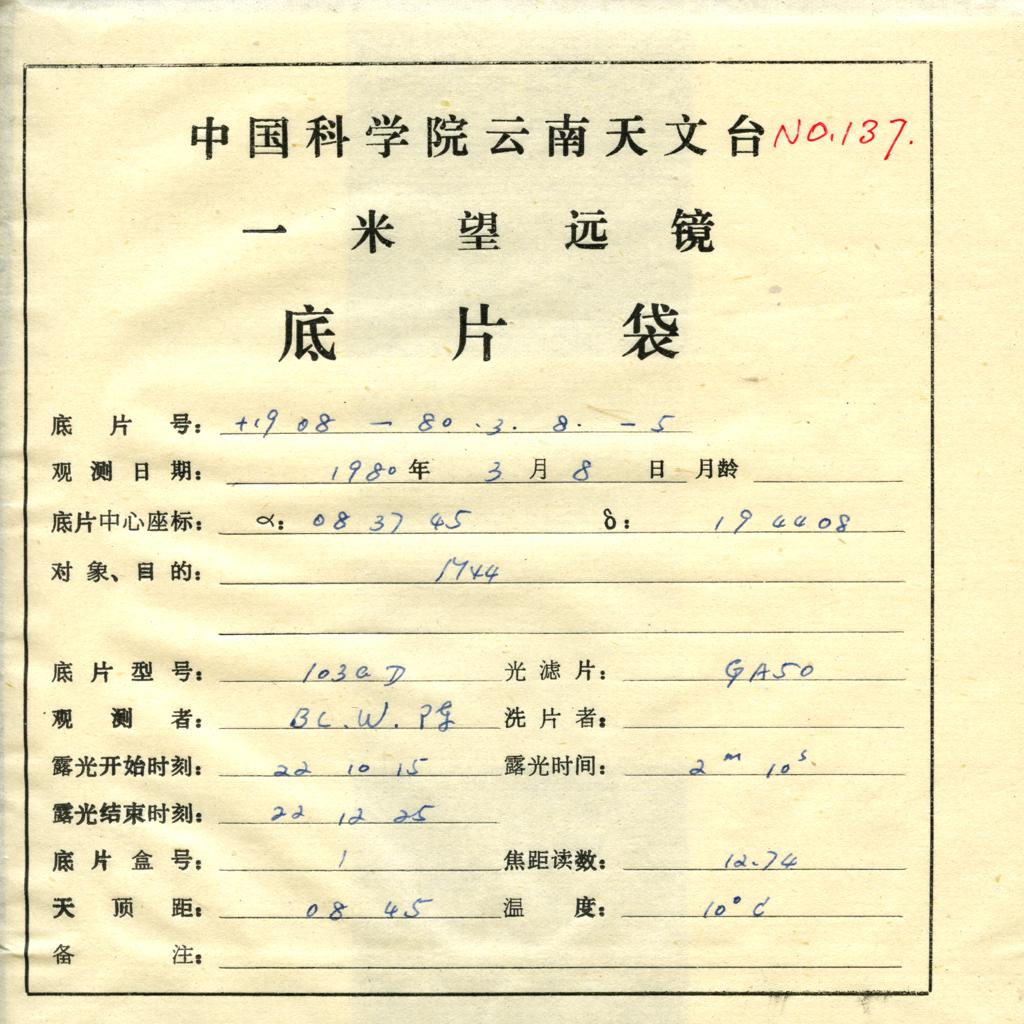 中国科学院云南天文台 NO.137.
一米望远镜
底片袋
底片号： +1908 — 80.3.8. — 5
观测日期： 1980年 3月8日 月龄
底片中心座标： α： 08 37 45 δ： 19 44 08
对象、目的： M44
底片型号： 103aD 光滤片： GA50
观测者： BL.W.陈 洗片者：
露光开始时刻： 22 10 15 露光时间： 2m 10s
露光结束时刻： 22 12 25
底片盒号： 1 焦距读数： 12.74
天顶距： 08 45 温度： 10°C
备注：